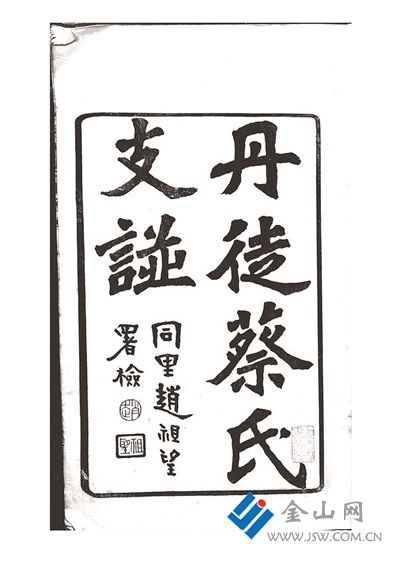 丹徒蔡氏
支譜
同里趙祖望
署檢
趙
祖望
金山网
WWW.JSW.COM.CN